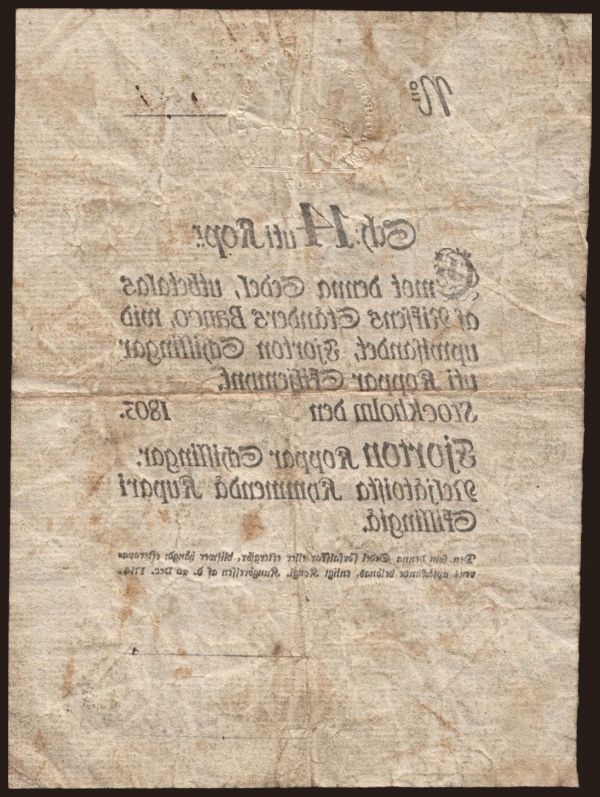 N:o
1803
Sch: 14 uti Kop:r.
Emot denna Sedel, utbetalas
af Riksens Ständers Banco, wid
upwisandet, Fjorton Schillingar
uti Koppar Skiljemynt.
Stockholm den 1803.
Fjorton Koppar Schillingar.
Neljätoista Kymmendä Kupari
Skillingiä.
Den som denna Sedel förfalskar eller eftergiör, blifwer hängd; efterapa-
rens uptäckande belönad, enligt Kongl. Kungjörelsen af d. 20 Dec. 1754.